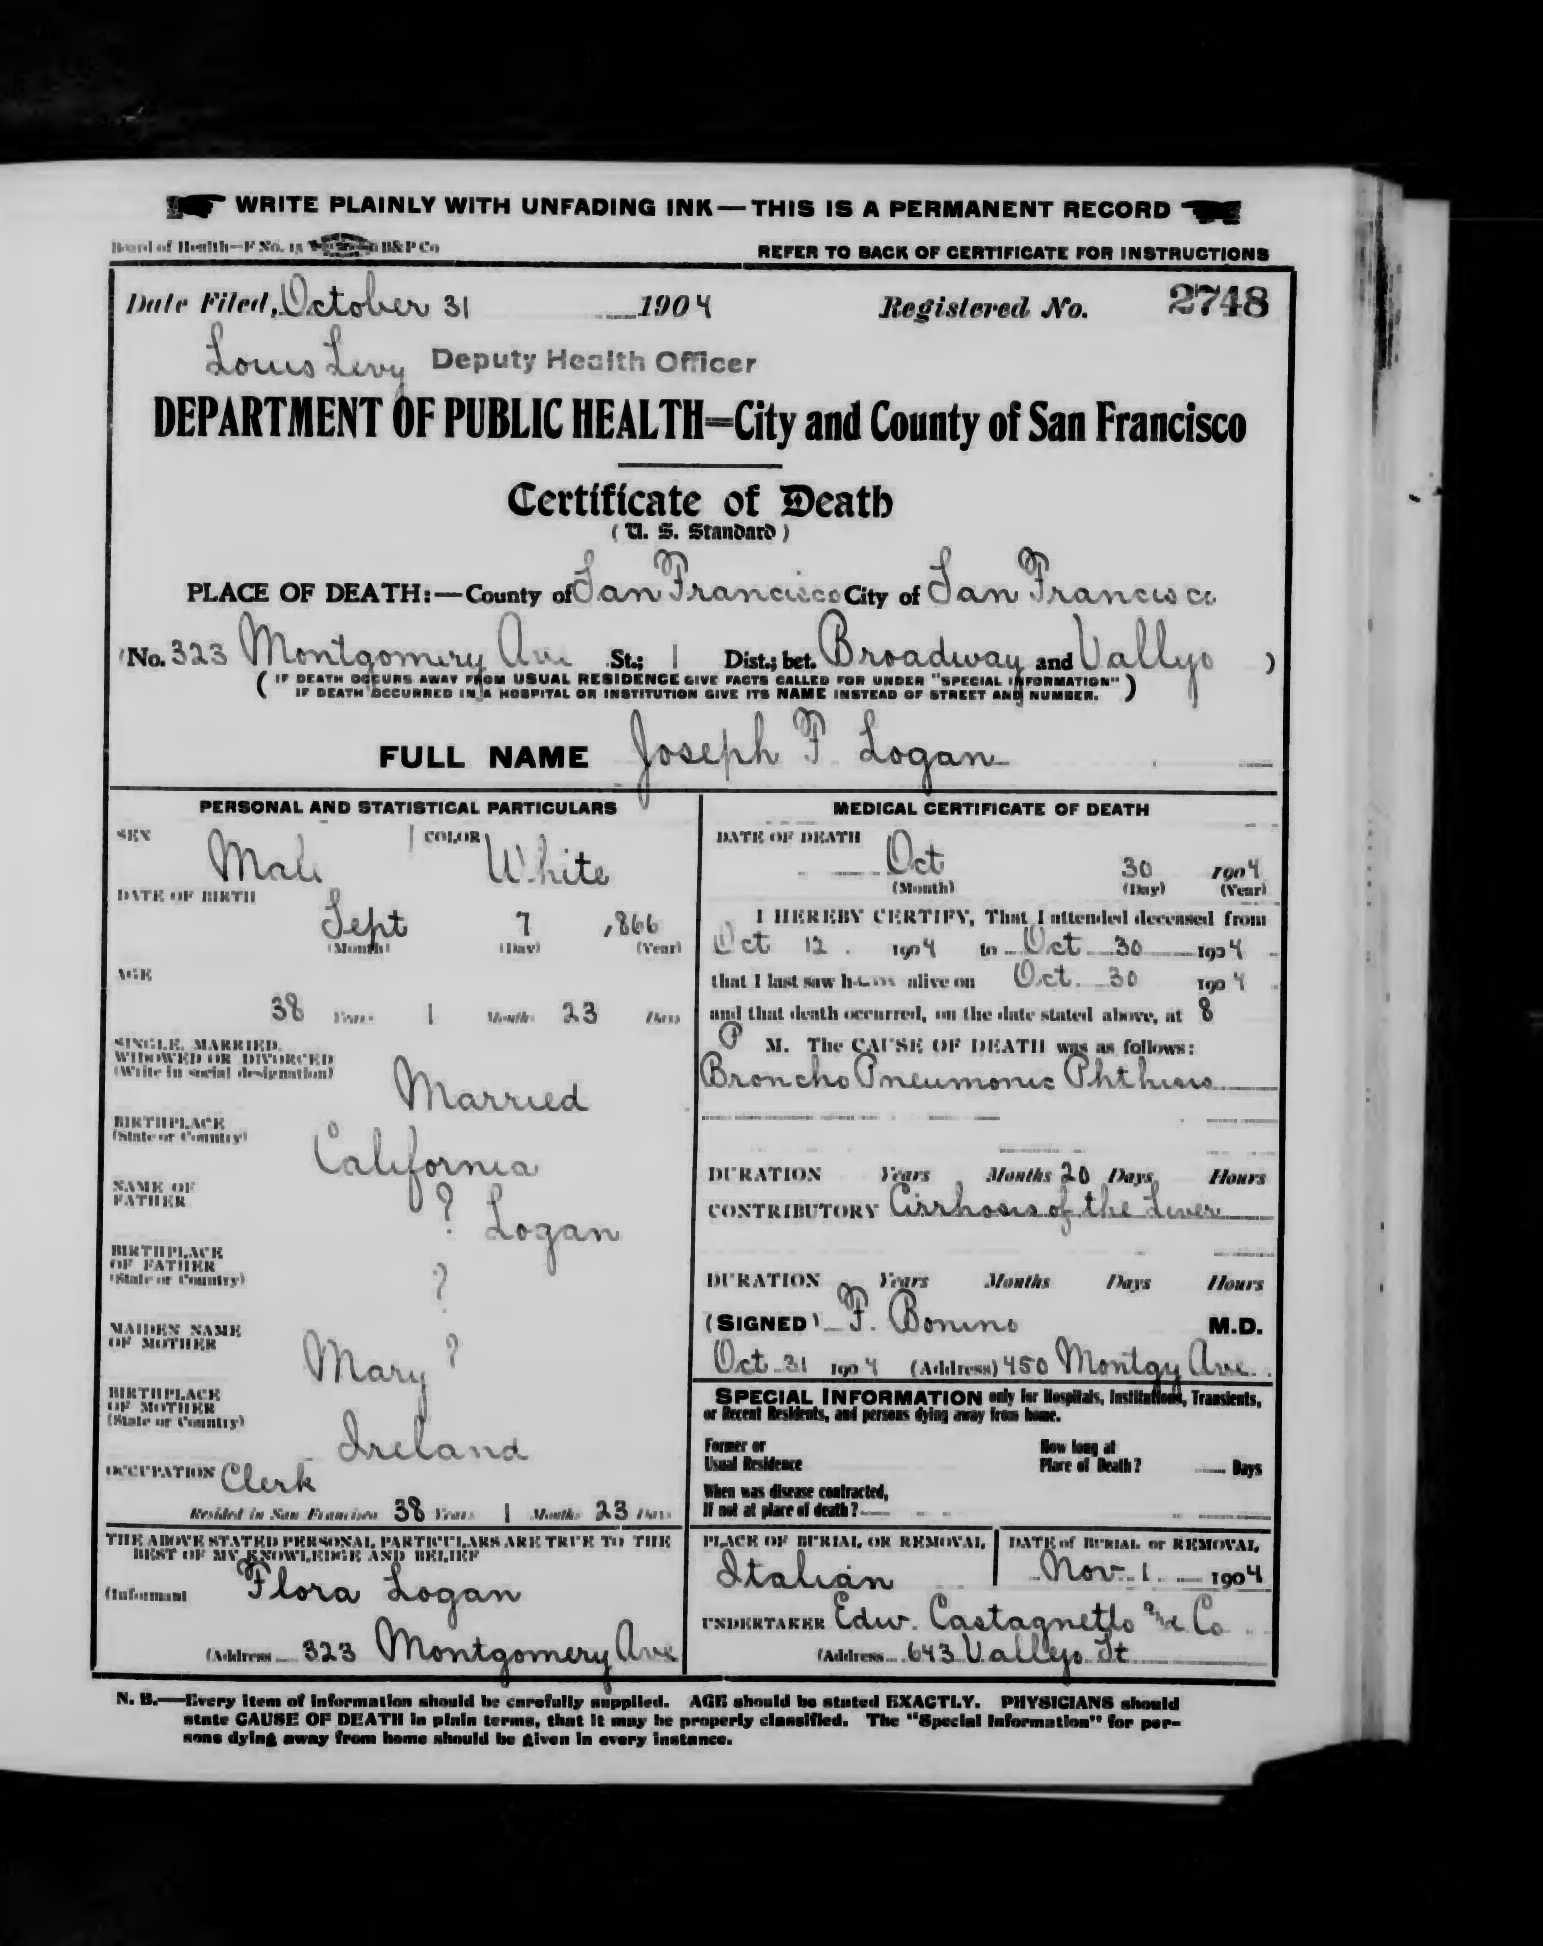 WRITE PLAINLY WITH UNFADING INK—THIS IS A PERMANENT RECORD
Board of Health—F No. 15 B&P Co
REFER TO BACK OF CERTIFICATE FOR INSTRUCTIONS
Date Filed, October 31 1904 Registered No. 2748
Louis Levy Deputy Health Officer
DEPARTMENT OF PUBLIC HEALTH=City and County of San Francisco
Certificate of Death
(U. S. Standard)
PLACE OF DEATH:—County of San Francisco City of San Francisco
(No. 323 Montgomery Ave St.; 1 Dist.; bet. Broadway and Vallejo )
( IF DEATH OCCURS AWAY FROM USUAL RESIDENCE GIVE FACTS CALLED FOR UNDER "SPECIAL INFORMATION"
IF DEATH OCCURRED IN A HOSPITAL OR INSTITUTION GIVE ITS NAME INSTEAD OF STREET AND NUMBER. )
FULL NAME Joseph F. Logan
PERSONAL AND STATISTICAL PARTICULARS
SEX Male COLOR White
DATE OF BIRTH
Sept 7 1866
(Month) (Day) (Year)
AGE
38 Years 1 Months 23 Days
SINGLE, MARRIED,
WIDOWED OR DIVORCED
(Write in social designation)
Married
BIRTHPLACE
(State or Country)
California
NAME OF
FATHER
? Logan
BIRTHPLACE
OF FATHER
(State or Country)
?
MAIDEN NAME
OF MOTHER
Mary ?
BIRTHPLACE
OF MOTHER
(State or Country)
Ireland
OCCUPATION Clerk
Resided in San Francisco 38 Years 1 Months 23 Days
THE ABOVE STATED PERSONAL PARTICULARS ARE TRUE TO THE
BEST OF MY KNOWLEDGE AND BELIEF
(Informant Flora Logan
(Address 323 Montgomery Ave
MEDICAL CERTIFICATE OF DEATH
DATE OF DEATH
Oct 30 1904
(Month) (Day) (Year)
I HEREBY CERTIFY, That I attended deceased from
Oct 12. 1904 to Oct 30 1904
that I last saw him alive on Oct. 30 1904
and that death occurred, on the date stated above, at 8
P M. The CAUSE OF DEATH was as follows:
Broncho Pneumonic Phthisis
DURATION Years Months 20 Days Hours
CONTRIBUTORY Cirrhosis of the Liver
DURATION Years Months Days Hours
(SIGNED) F. Bonino M.D.
Oct 31 1904 (Address) 450 Montgy Ave.
SPECIAL INFORMATION only for Hospitals, Institutions, Transients,
or Recent Residents, and persons dying away from home.
Former or
Usual Residence
How long at
Place of Death? Days
When was disease contracted,
If not at place of death?
PLACE OF BURIAL OR REMOVAL
Italian
DATE of BURIAL or REMOVAL
Nov 1 1904
UNDERTAKER Edw. Castagnetto and Co
(Address 643 Vallejo St
N. B.—Every item of information should be carefully supplied. AGE should be stated EXACTLY. PHYSICIANS should
state CAUSE OF DEATH in plain terms, that it may be properly classified. The "Special Information" for per-
sons dying away from home should be given in every instance.